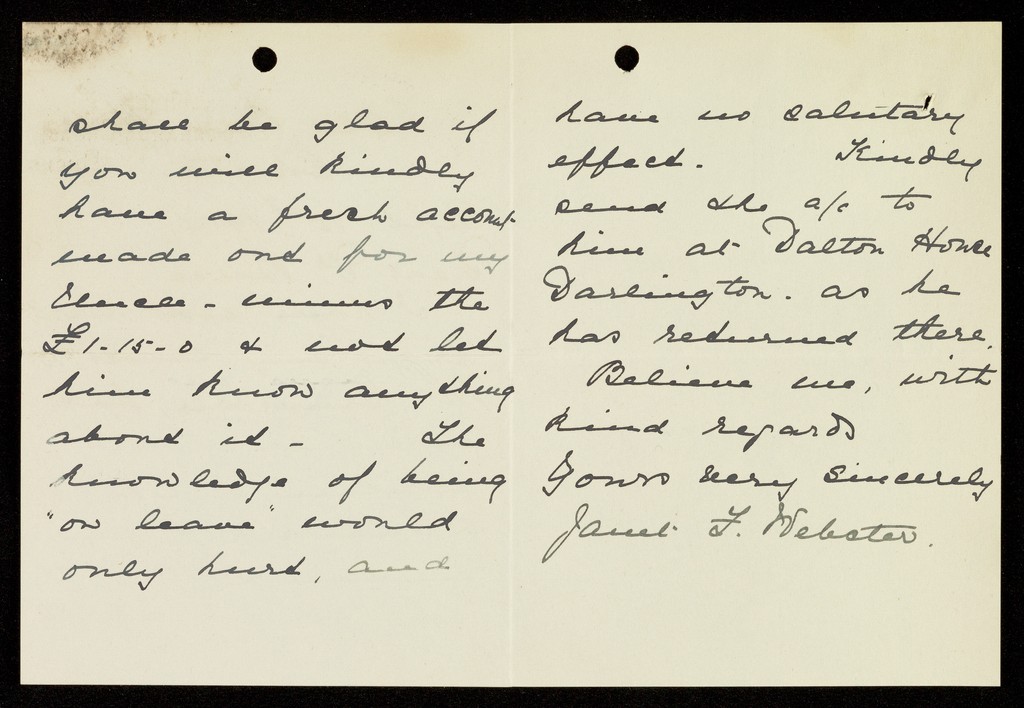 shall be glad if
you will kindly
have a fresh account
made out for my
Uncle - minus the
£1-15-0 & not let
him know anything
about it - The
knowledge of being
"on leave" would
only hurt, and
have no salutary
effect. Kindly
send the a/c to
him at Dalton House
Darlington. as he
has returned there.
Believe me, with
kind regards
Yours very sincerely
Janet F. Webster.